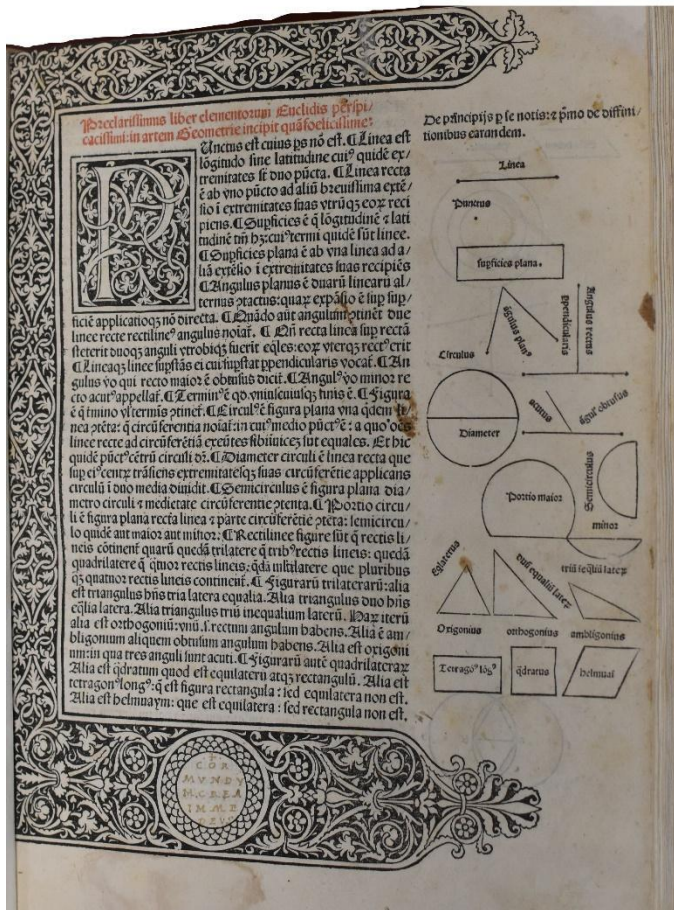 Preclarissimus liber elementorum Euclidis perspi/
cacissimi: in artem Geometrie incipit quā foelicissime:
Unctus est cuius ps nō est. ¶ Linea est
lōgitudo sine latitudine cuiꝰ quidē ex/
tremitates st̄ duo pūcta. ¶ Linea recta
ē ab vno pūcto ad aliū breuissima extē/
sio i extremitates suas vtrūqꝫ eoꝝ reci
piens. ¶ Supficies ē q̄ lōgitudinē ⁊ lati
tudinē tm̄ hꝫ: cuiꝰ termi quidē sūt linee.
¶ Supficies plana ē ab vna linea ad a/
liā extēsio i extremitates suas recipiēs
¶ Angulus planus ē duarū linearū al/
ternus ꝯtactus: quaꝝ expāsio ē sup sup/
ficiē applicatioqꝫ nō directa. ¶ Quādo aūt angulum ꝯtinēt due
linee recte rectilineꝰ angulus noiat̄. ¶ Qn̄ recta linea sup rectā
steterit duoqꝫ anguli vtrobiqꝫ fuerīt eq̄les: eoꝝ vterqꝫ rectꝰ erit
¶ Lineaqꝫ linee supstās ei cui supstat ppendicularis vocat̄. ¶ An
gulus vo qui recto maior ē obtusus dicit̄. ¶ Angulꝰ vo minor re
cto acutꝰ appellat̄. ¶ Terminꝰ ē qd vniuscuiusqꝫ finis ē. ¶ Figura
ē q̄ tmino vl terminis ꝯtinet̄. ¶ Circulꝰ ē figura plana vna qdem li/
nea ꝯtēta: q̄ circūferentia noiat̄: in cuiꝰ medio pūctꝰ ē: a quo oēs
linee recte ad circūferētiā exeūtes sibiinuicē sūt equales. Et hic
quidē pūctꝰ cētrū circuli dr̄. ¶ Diameter circuli ē linea recta que
sup eiꝰ centꝝ trāsiens extremitatesqꝫ suas circūferētie applicans
circulū i duo media diuidit. ¶ Semicirculus ē figura plana dia/
metro circuli ⁊ medietate circūferentie ꝯtenta. ¶ Portio circu/
li ē figura plana recta linea ⁊ parte circūferētie ꝯtēta: semicircu/
lo quidē aut maior aut minor. ¶ Rectilinee figure sūt q̄ rectis li/
neis cōtinent̄ quarū quedā trilatere q̄ tribꝰ rectis lineis: quedā
quadrilatere q̄ q̄tuor rectis lineis: qdā mltilatere que pluribus
qꝫ quatuor rectis lineis continent̄. ¶ Figurarū trilaterarū: alia
est triangulus hn̄s tria latera equalia. Alia triangulus duo hn̄s
eq̄lia latera. Alia triangulus triū inequalium laterū. Haꝝ iterū
alia est orthogoniū: vnū .s. rectum angulum habens. Alia ē am/
bligonium aliquem obtusum angulum habens. Alia est oxigoni
um: in qua tres anguli sunt acuti. ¶ Figurarū autē quadrilateraꝝ
Alia est q̄dratum quod est equilaterū atqꝫ rectangulū. Alia est
tetragonꝰ longꝰ: q̄ est figura rectangula: sed equilatera non est.
Alia est helmuaym: que est equilatera: sed rectangula non est.
De principijs p se notis: ⁊ pmo de diffini/
tionibus earandem.
Linea
Punctus
supficies plana.
āgulus planꝰ
ppendicularis
Angulus rectus
Circulus
Diameter
acutus
āgulꝰ obtusus
Portio maior
Semicirculus
minor
Eqlaterus
duū equaliū lateꝝ
triū ieq̄liū lateꝝ
Oxigonius
orthogonius
ambligonius
Tetragōꝰ lōgꝰ
q̄dratus
helmuai
COR
MVNDV
M CREA
IM ME
DEVS